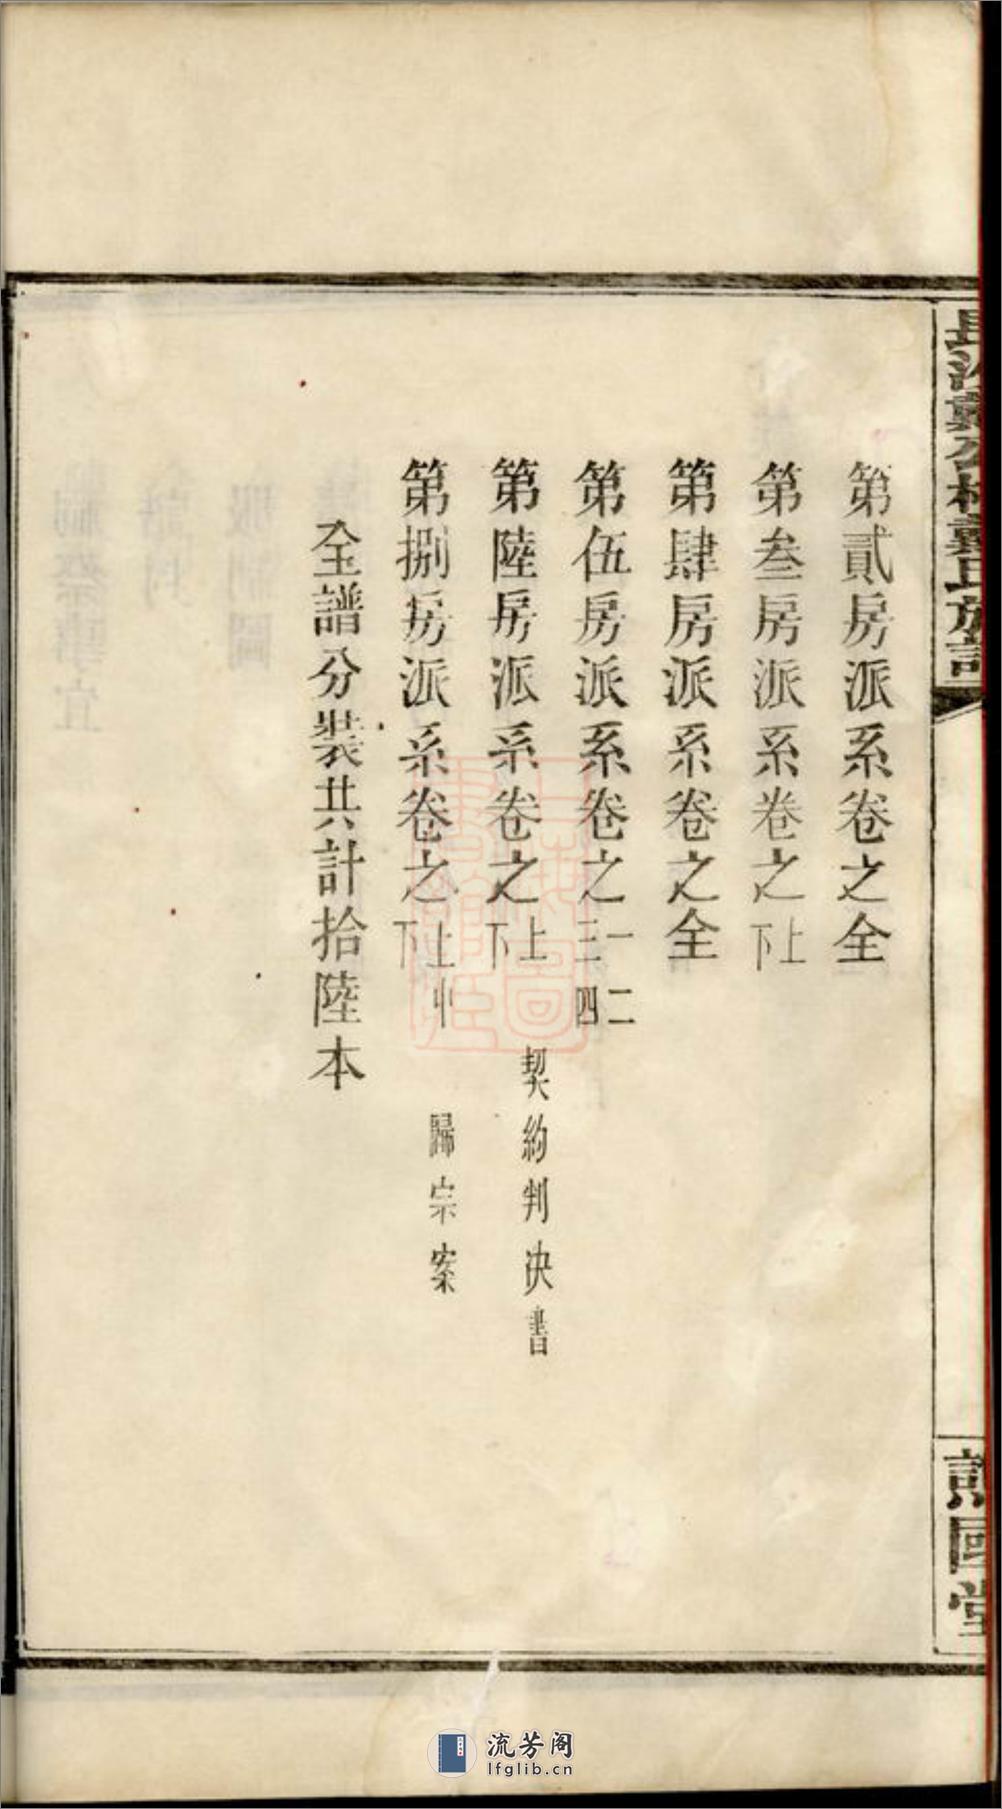 長沙戴公橋戴氏族譜
國堂
第貳房派系卷之全
第叁房派系卷之上下
第肆房派系卷之全
第伍房派系卷之一二三四
第陸房派系卷之上下 契約判决書
第捌房派系卷之上中下 歸宗案
全譜分裝共計拾陸本
流芳阁
lfglib.cn